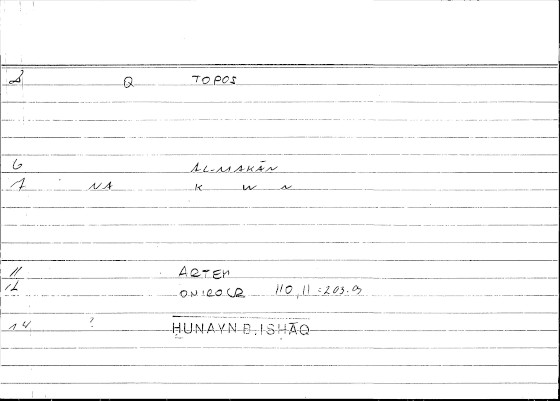 Q TOPOS
6 AL-MAKĀN
7 NA K W N
11 ARTEM
12 ONIROCR 110,11=203.9
14 ? ḤUNAYN B. ISḤĀQ